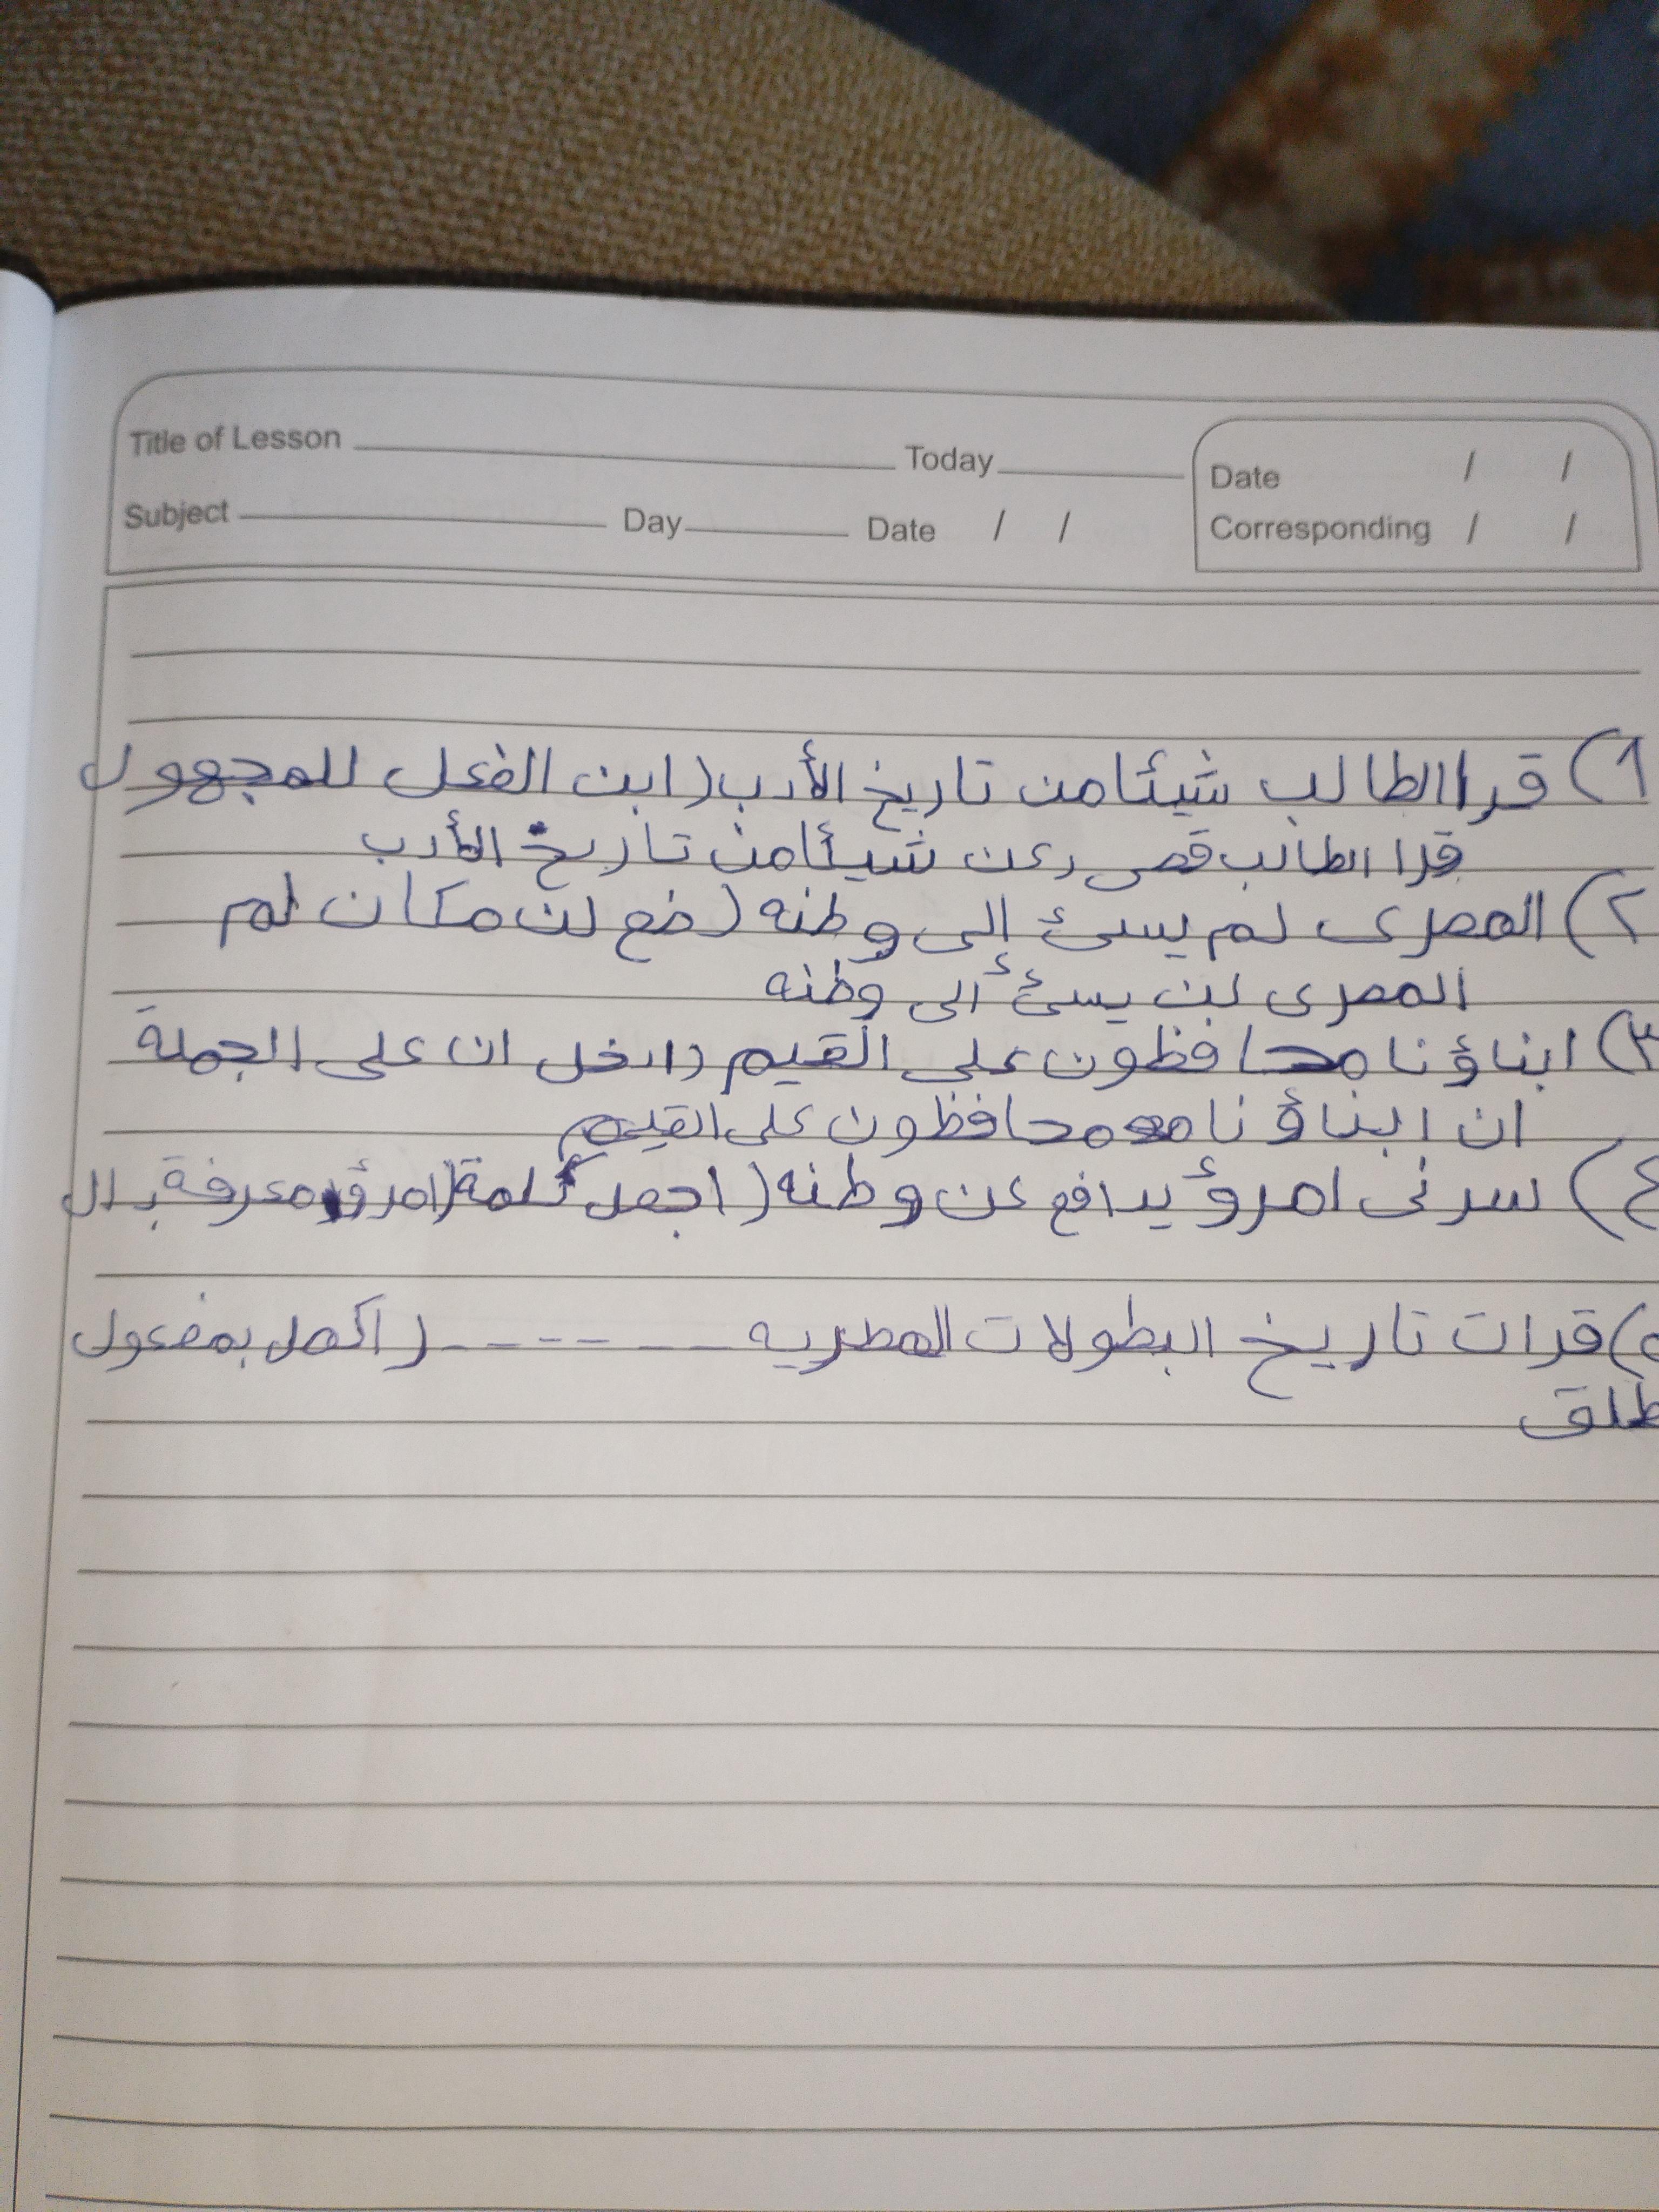 Title of Lesson Today Date / /
Subject Day Date / / Corresponding / /
١) قرا الطالب شيئا من تاريخ الأدب (ابن الفعل للمجهول
قرا الطالب عن شيئا من تاريخ الأدب
٢) المصرى لم يسئ إلى وطنه (ضع لن مكان لم
المصرى لن يسئ ألى وطنه
٣) ابناؤنا محافظون على القيم (ادخل ان على الجملة
ان ابناؤنا محافظون على القيم
٤) سرنى امرؤ يدافع عن وطنه (اجعل كلمة (امرؤ) معرفة بـ ال
٥) قرات تاريخ البطولات المصريه ------ (اكمل بمفعول
طلق